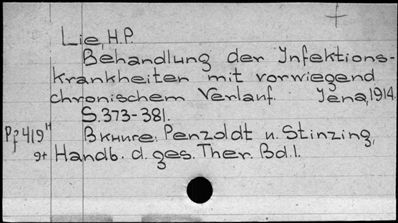 Lie, H.P.
Behandlung der Infektions-
krankheiten mit vorwiegend
chronischem Verlauf. Jena, 1914.
S. 373-381.
Pf 419н Вкниге: Penzoldt u. Stinzing,
9+ Handb. d. ges. Ther. Bd. 1.